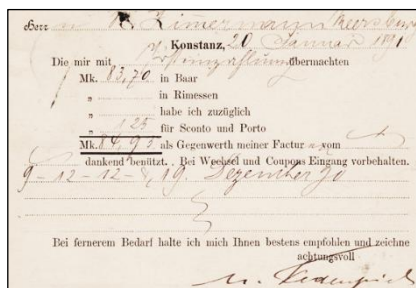 Herr R. Zimermann Meersburg
Konstanz, 20 Januar 1891
Die mir mit Posteinzahlung übermachten
Mk. 83,70 in Baar
„ in Rimessen
„ habe ich zuzüglich
„ 1.25 für Sconto und Porto
Mk. 84,95 als Gegenwerth meiner Factur vom
dankend benützt. Bei Wechsel und Coupons Eingang vorbehalten.
9 - 12 - 12 - 19. Dezember 90
Bei fernerem Bedarf halte ich mich Ihnen bestens empfohlen und zeichne
achtungsvoll